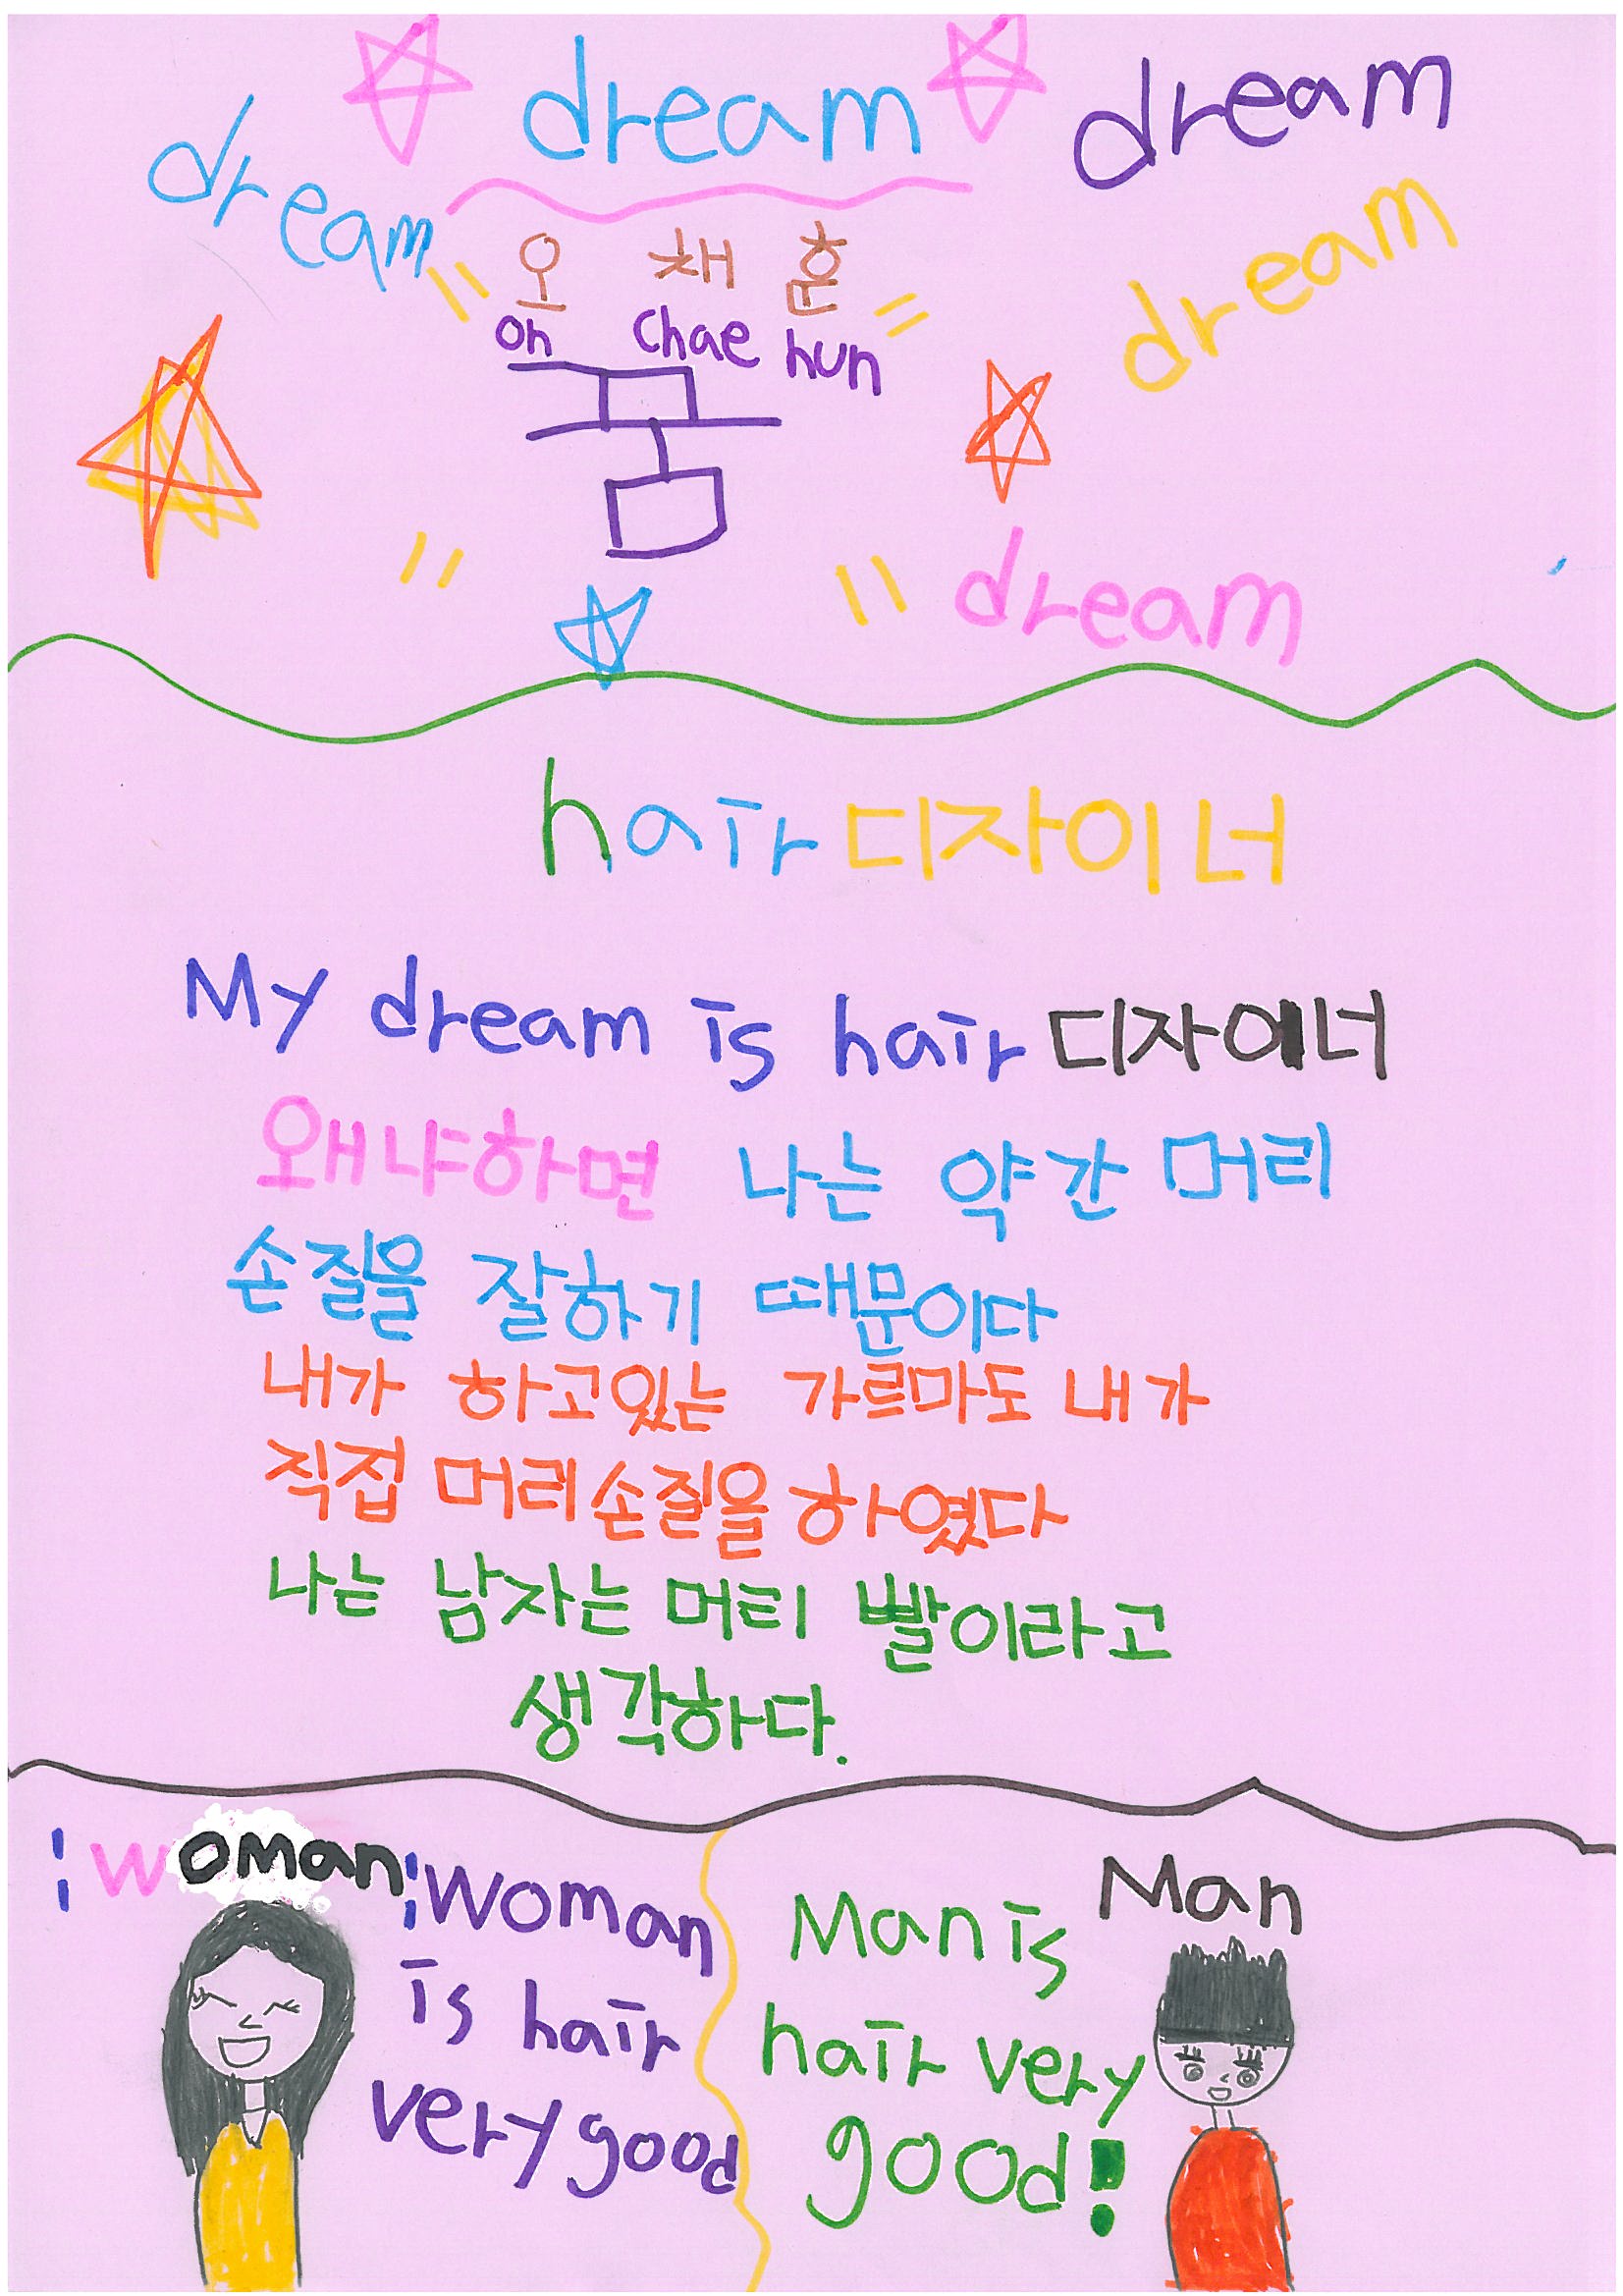 dream
dream
dream
dream
오 채 훈
oh chae hun
dream
hair 디자이너
My dream is hair 디자이너
왜냐하면 나는 약간 머리
손질을 잘하기 때문이다
내가 하고있는 가르마도 내가
직접 머리손질을 하였다
나는 남자는 머리 빨이라고
생각하다.
woman
Woman
is hair
very good
Man
Man is
hair very
good!